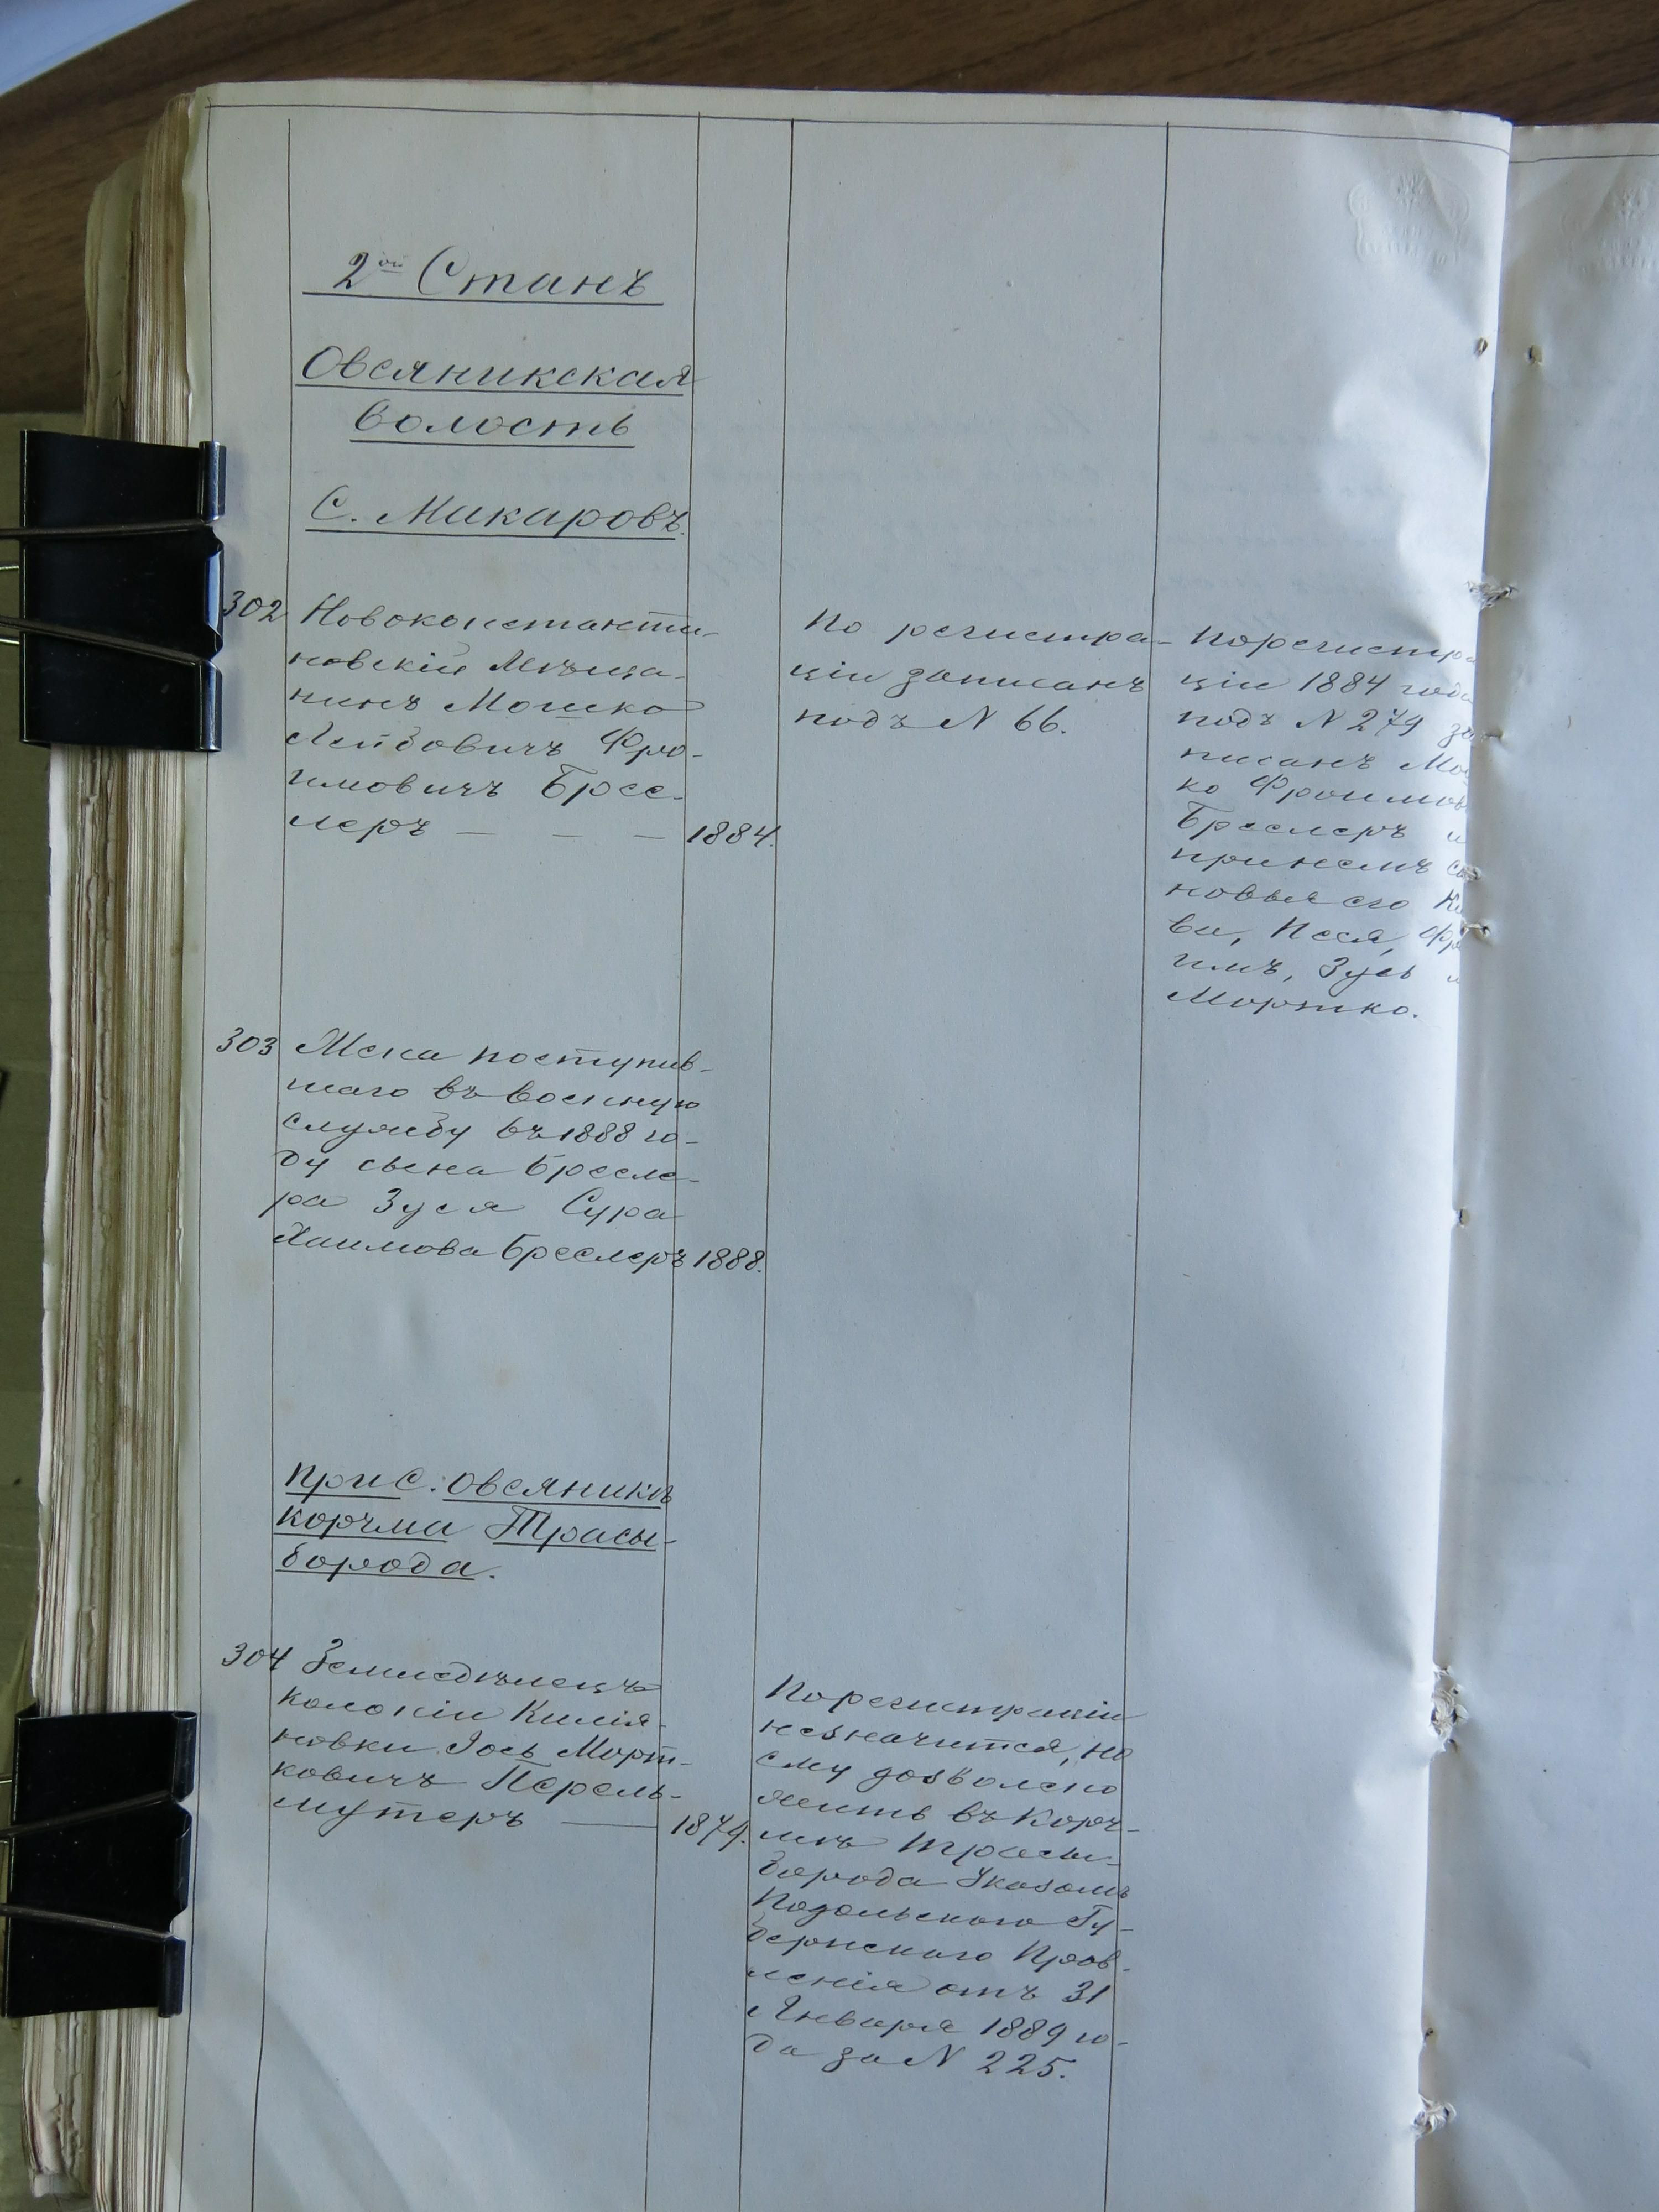 2ой Станъ
Овсяникская
волость
С. Макаровъ.
302 Новоконстанти-
новскій Мѣща-
нинъ Мошко
Лейбовичъ Фро-
имовичъ Брес-
леръ — — — 1884.
По регистра-
ціи записанъ
подъ N 66.
По регистра
ціи 1884 года
подъ N 279 за
писанъ Мош
ко Фроимов
Бреслеръ и
при немъ сы
новья его Ки
ва, Песя, Фро
имъ, Зусь и
Мортко.
303 Жена поступив-
шаго въ военную
службу въ 1888 го-
ду сына Бресле-
ра Зуся Сура
Хаимова Бреслеръ 1888.
При С. Овсяникъ
корчма Трасы-
борода.
304 Земледѣлецъ
колоніи Килія-
новки Іось Морт-
ковичъ Перель-
мутеръ — 1879.
По регистраціи
незначится, но
ему дозволено
жить въ Корч-
мѣ Трасы-
борода Указомъ
Подольскаго Гу-
бернскаго Прав-
ленія отъ 31
Января 1889 го-
да за N 225.